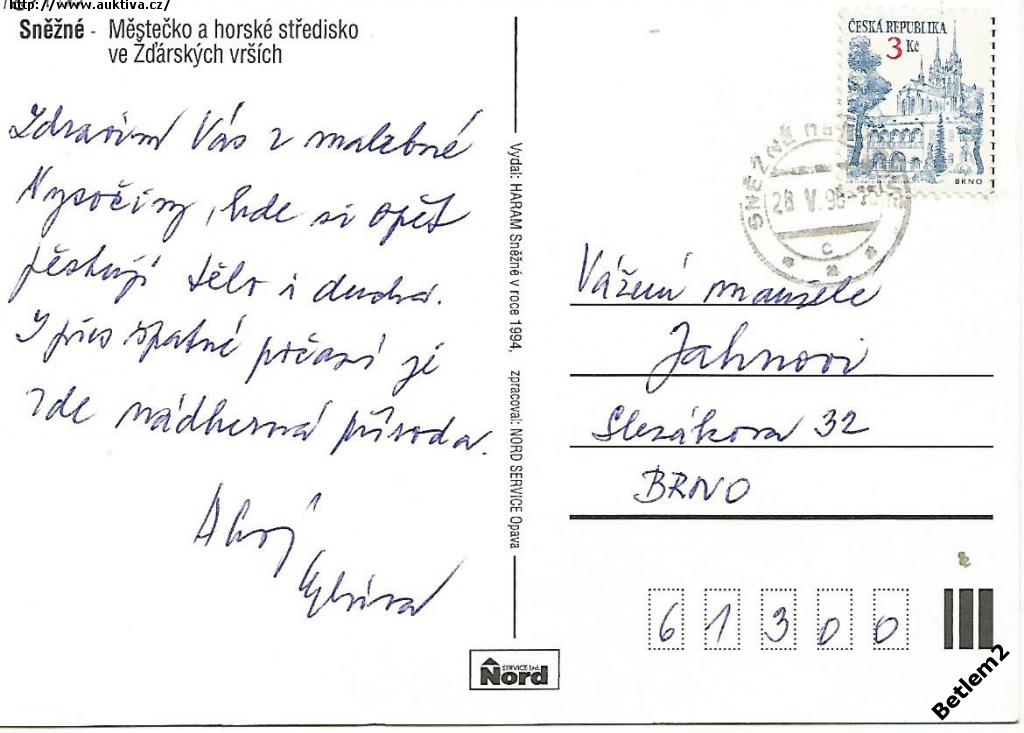 http://www.auktiva.cz/
Sněžné - Městečko a horské středisko
ve Žďárských vrších
Zdravím Vás z malebné
Vysočiny, kde si opět
pěstuji tělo i ducha.
I přes špatné počasí je
zde nádherná příroda.
Ahoj
Vydal: HARAM Sněžné v roce 1994, zpracoval: NORD SERVICE Opava
SERVICE
Nord
ČESKÁ REPUBLIKA
3 Kč
BRNO
SNĚŽNĚ
28 V. 96
c
Vážení manželé
Jahnovi
Slezákova 32
BRNO
61300
Betlem2